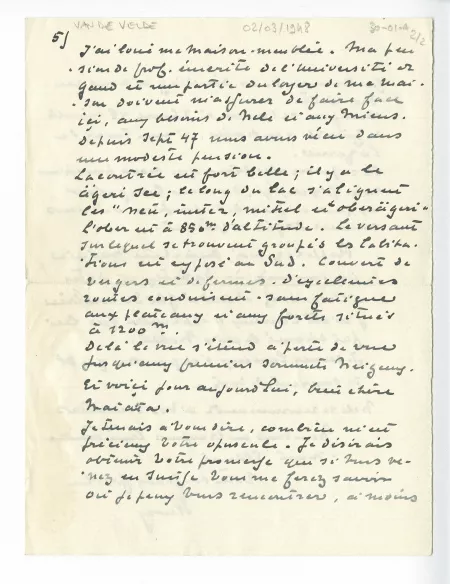 VAN DE VELDE 02/03/1948 2/2
5)
J'ai loué ma maison-meublée. Ma pen
sion de prof. émérite de l'Université de
Gand et une partie du loyer de ma mai-
son doivent m'assurer de faire face
ici, aux besoins de Nele et aux miens.
Depuis Sept 47 nous avons vécu dans
une modeste pension.
La contrée est fort belle; il y a le
ägeri See; le long du lac s'alignent
les "Neu, unter, mittel et oberägeri"
L'ober est à 850m d'altitude. Le versant
sur lequel se trouvent groupés les habita-
tions est exposé au Sud. Couvert de
vergers et de fermes. D'excellentes
routes conduisent - sans fatigue
aux plateaux et aux forêts situés
à 1200m.
De là la vue s'étend à perte de vue
jusqu'aux premiers sommets neigeux.
Et voici pour aujourd'hui, bien chère
Maiata.
Je tenais à vous dire, combien m'est
précieux votre opuscule. Je désirais
obtenir votre promesse que si vous ve-
nez en Suisse vous me ferez savoir
où je peux vous rencontrer, à moins